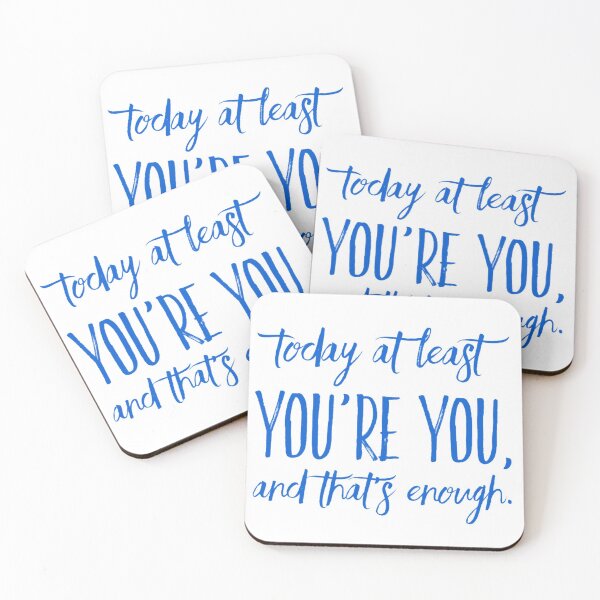 today at least
YOU'RE YO
today at least
YOU'RE YOU,
ugh.
today at least
YOU'RE YOU
and that's
today at least
YOU'RE YOU,
and that's enough.